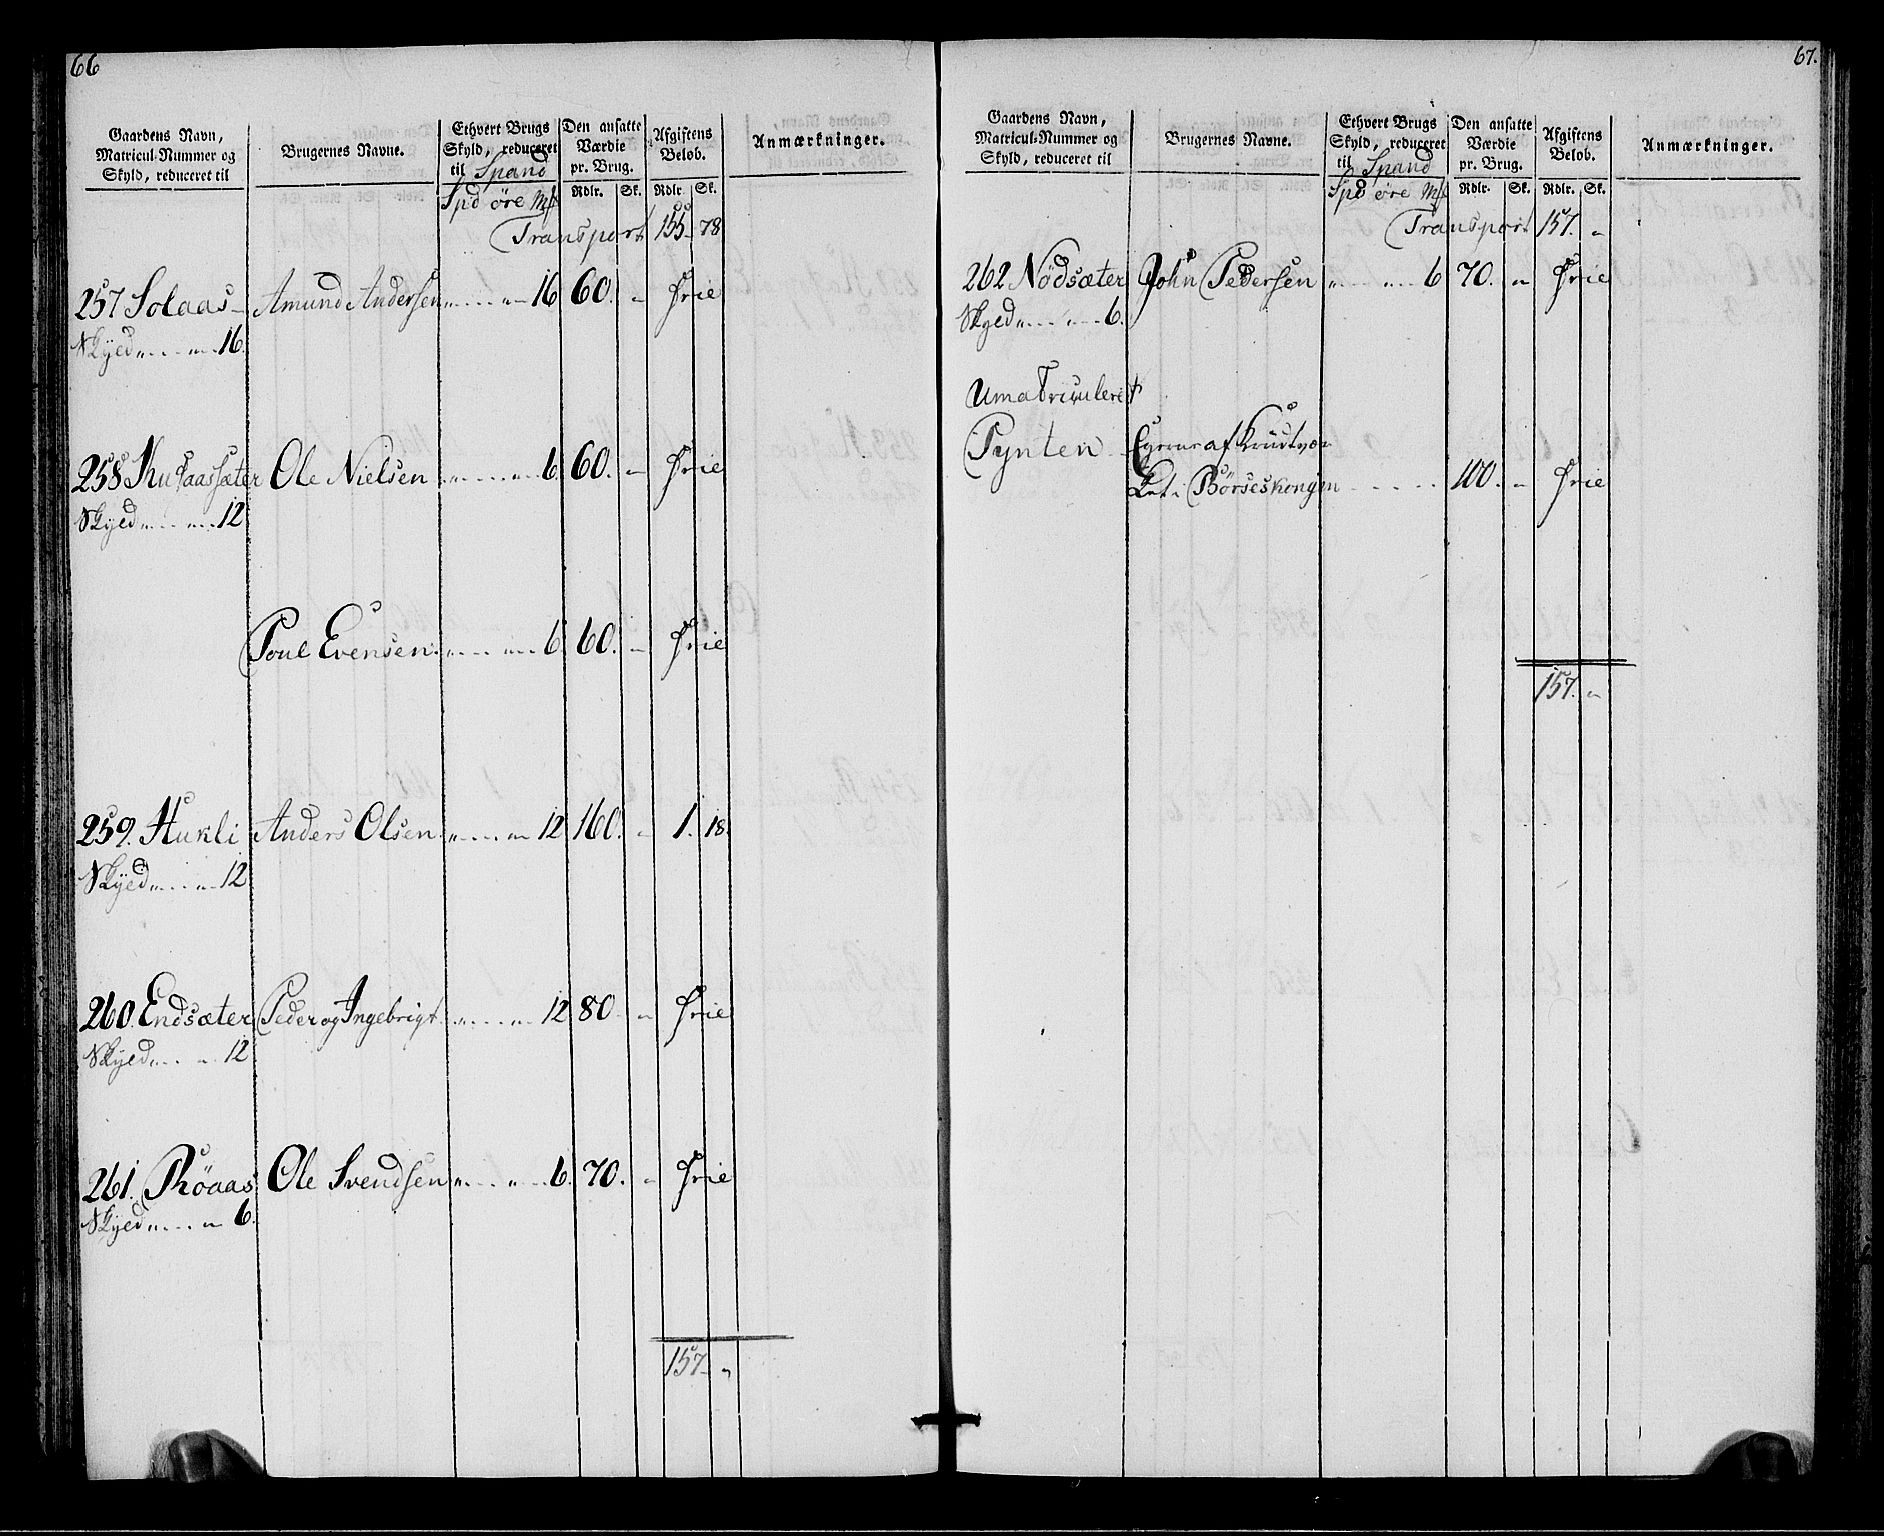 66
Gaardens Navn,
Matricul-Nummer og
Skyld, reduceret til
Brugernes Navne.
Ethvert Brugs
Skyld, reduceret
til Spand
Spd øre Mk
Den ansatte
Værdie
pr. Brug.
Rdlr. Sk.
Afgiftens
Beløb.
Rdlr. Sk.
Anmærkninger.
Transport 155 - 78
257 Solaas - Amund Andersen " " 16 60. " Frie
Skyld " " 16.
258 Ole Nielsen " " 6 60. " Frie
Skyld " " 12
Poul Evensen " " 6 60. " Frie
259. Hukli Anders Olsen " " 12 160. " 1. 18.
Skyld " " 12
260. Endsæter Peder og Ingebrigt " " 12 80. " Frie
Skyld " " 12
261. Röaas Ole Svendsen " " 6. 70. " Frie
Skyld " " 6.
157. "
67.
Gaardens Navn,
Matricul-Nummer og
Skyld, reduceret til
Brugernes Navne.
Ethvert Brugs
Skyld, reduceret
til Spand
Spd øre Mk
Den ansatte
Værdie
pr. Brug.
Rdlr. Sk.
Afgiftens
Beløb.
Rdlr. Sk.
Anmærkninger.
Transport 157. "
262 Nödsæter John Pedersen " " 6 70. " Frie
Skyld " " 6.
Umatriculert
Pynten Egerne af Krudtvær-
ket i Börseskongen 100. " Frie
157. "